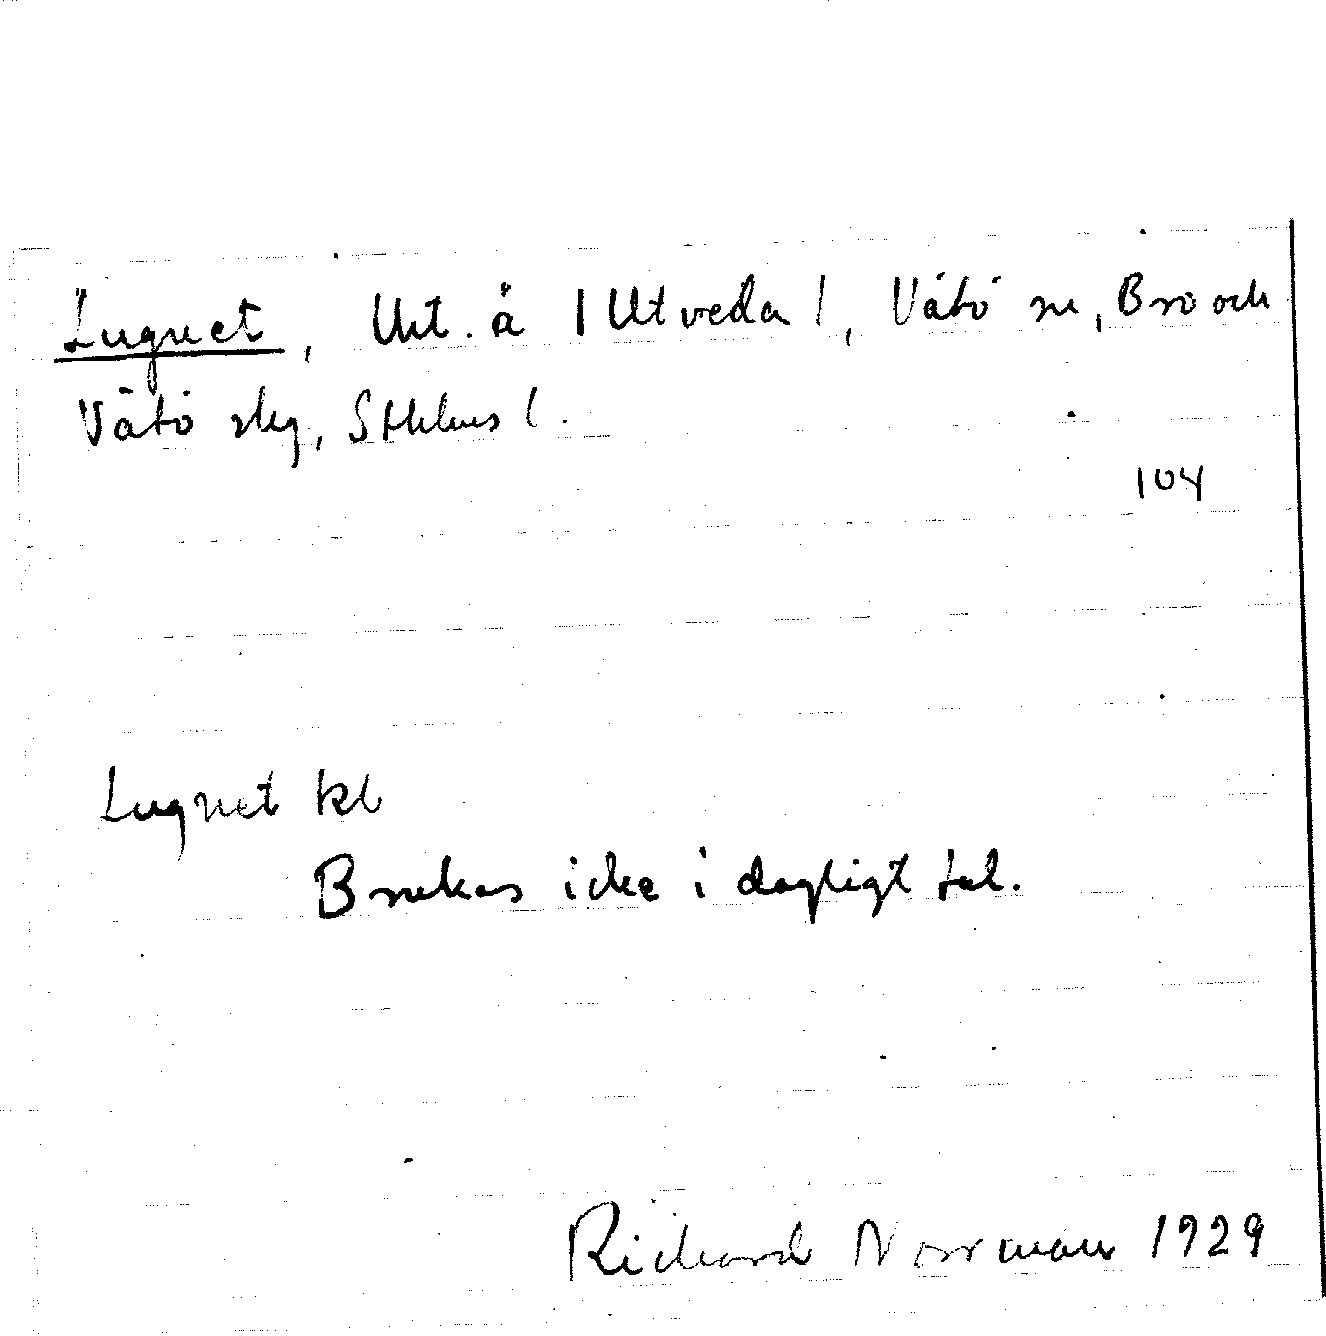 Lugnet, Utt. å 1 Utveda 1, Vätö sn, Bro och
Vätö skg, Sthlms l.
104
Lugnet kl
Brukas icke i dagligt tal.
Richard Norrman 1929